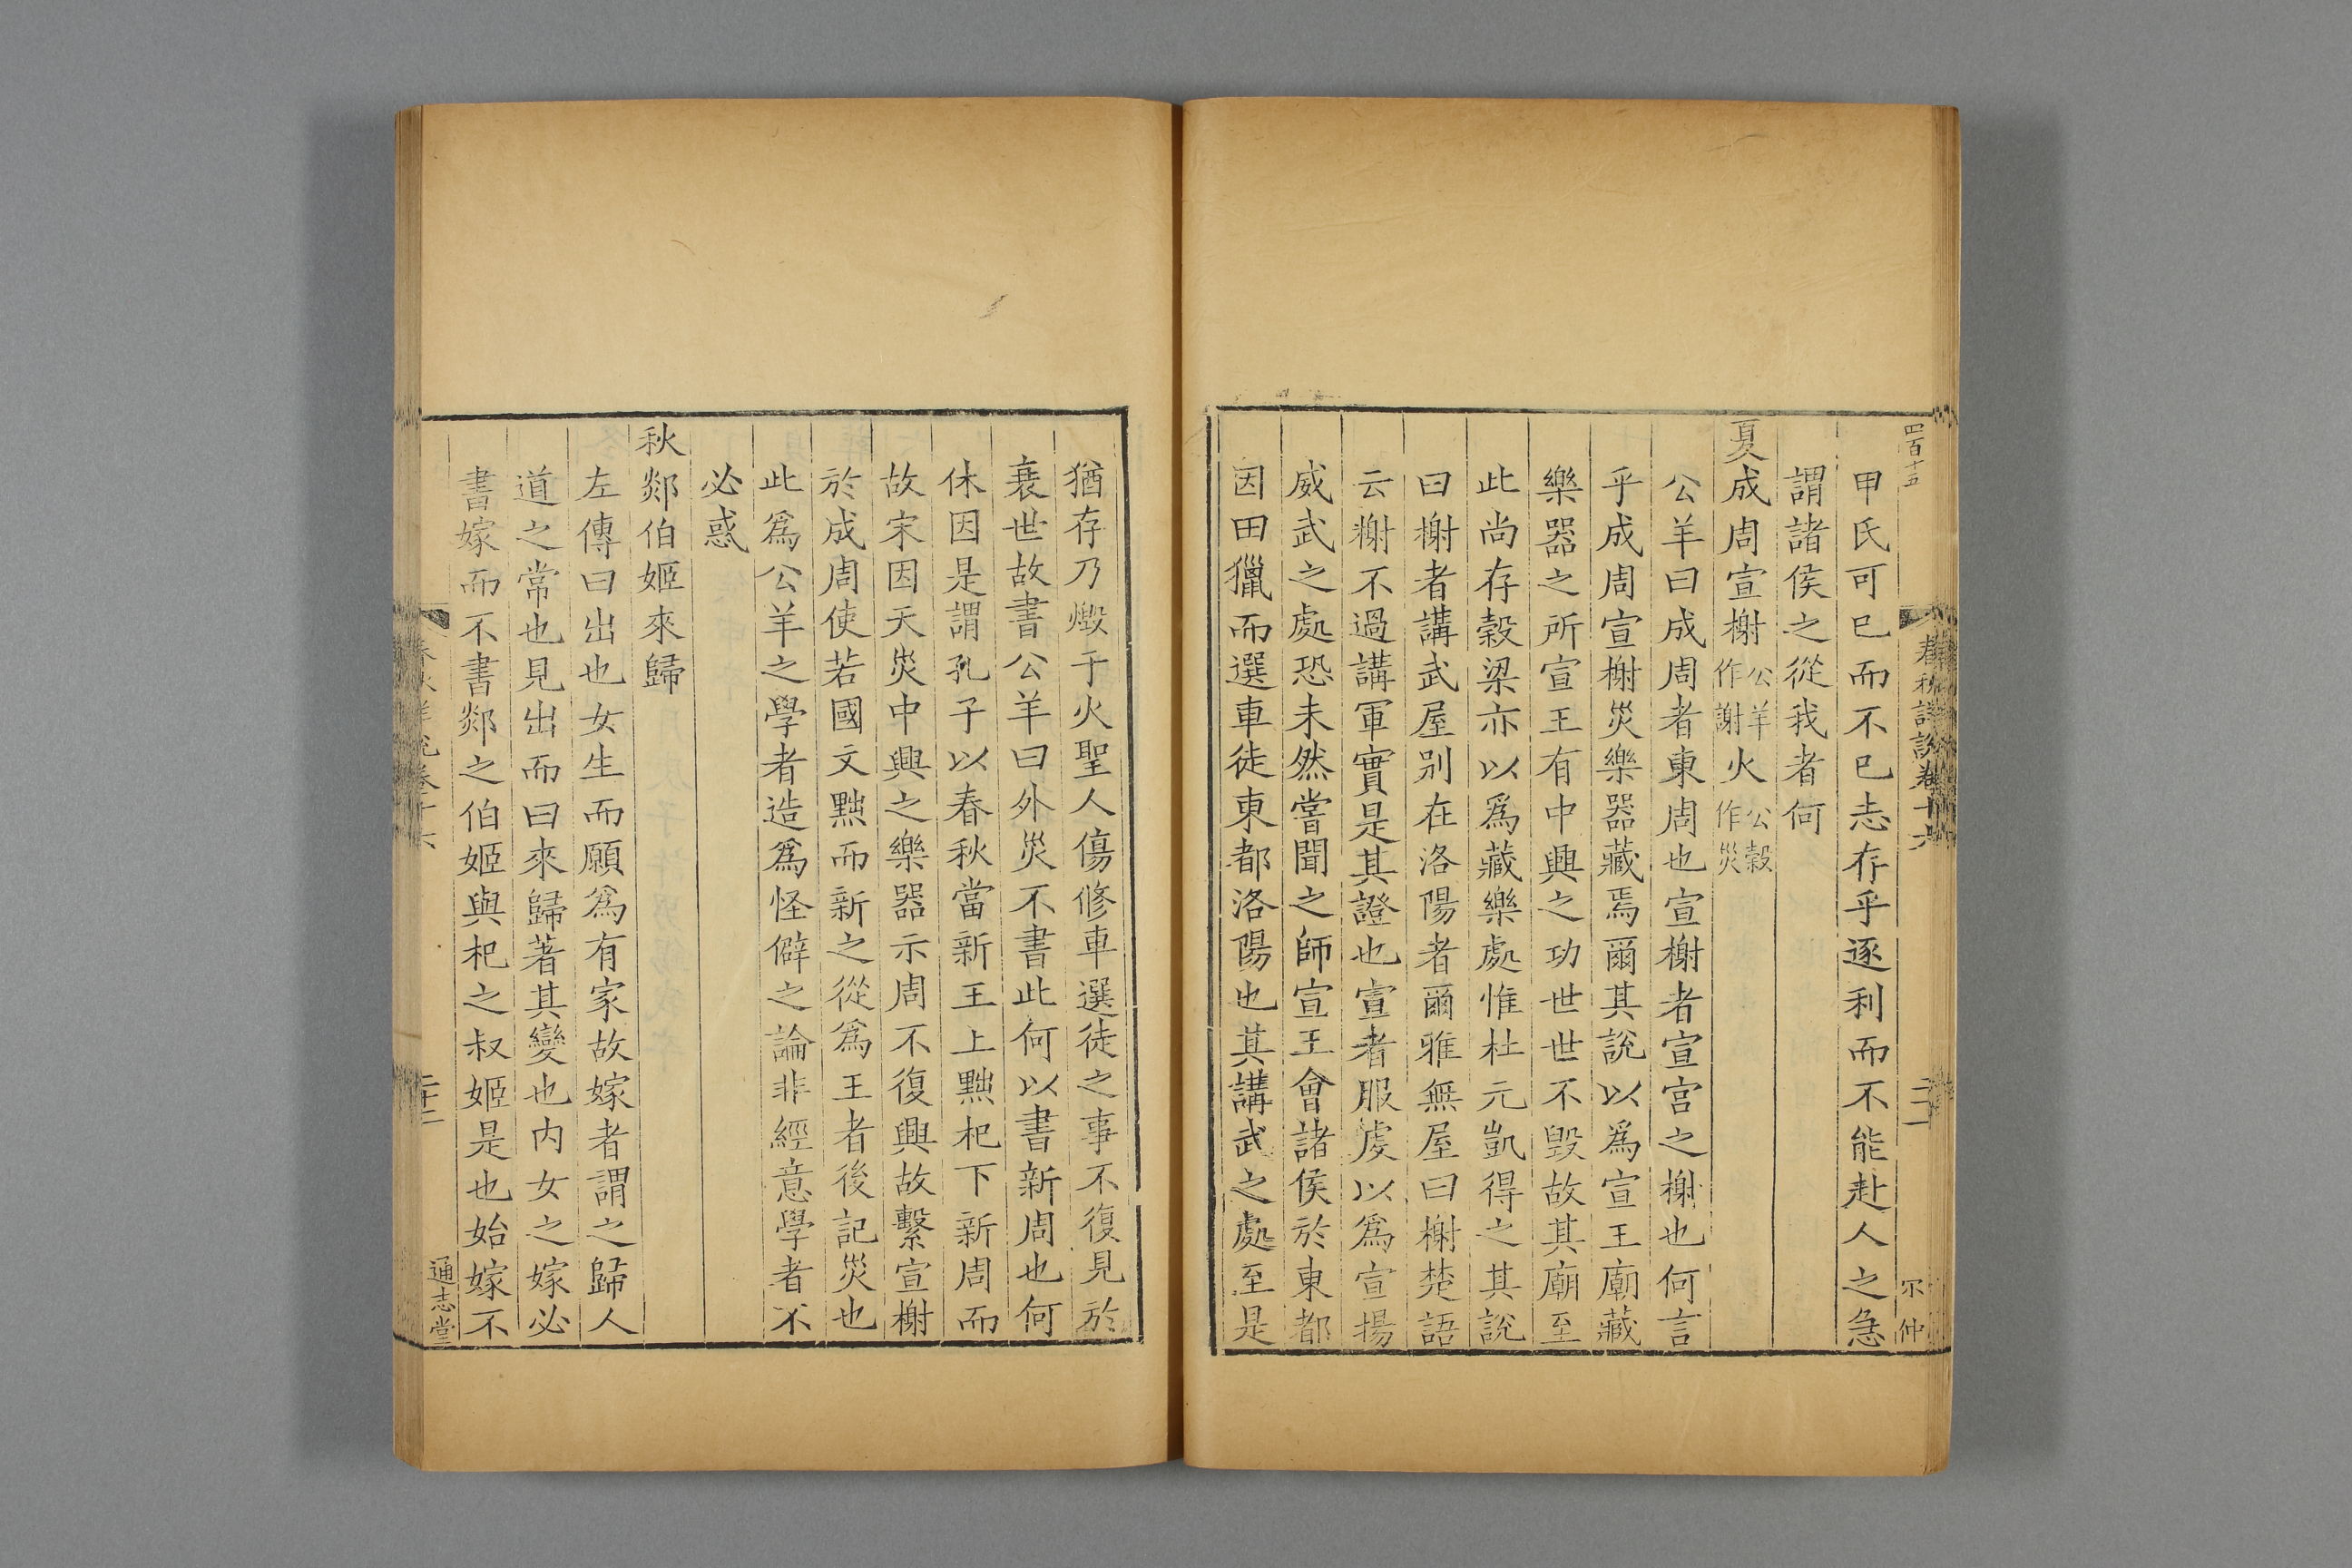 四百十五
春秋詳說卷十六
二一
尔仲
甲氏可已而不已志存乎逐利而不能赴人之急
謂諸侯之從我者何
夏成周宣榭公羊作謝火公穀作災
公羊曰成周者東周也宣榭者宣宮之榭也何言
乎成周宣榭災樂器藏焉爾其說以為宣王廟藏
樂器之所宣王有中興之功世世不毀故其廟至
此尚存穀梁亦以爲藏樂處惟杜元凱得之其說
曰榭者講武屋别在洛陽者爾雅無屋曰榭楚語
云榭不過講軍實是其證也宣者服虔以爲宣揚
威武之處恐未然嘗聞之師宣王會諸侯於東都
因田獵而選車徒東都洛陽也其講武之處至是
猶存乃燬于火聖人傷修車選徒之事不復見於
衰世故書公羊曰外災不書此何以書新周也何
休因是謂孔子以春秋當新王上黜杞下新周而
故宋因天災中興之樂器示周不復興故繫宣榭
於成周使若國文黜而新之從爲王者後記災也
此爲公羊之學者造爲怪僻之論非經意學者不
必惑
秋郯伯姬來歸
左傳曰出也女生而願爲有家故嫁者謂之歸人
道之常也見出而曰來歸著其變也内女之嫁必
書嫁而不書郯之伯姬與杞之叔姬是也始嫁不
春秋詳說卷十六
通志堂